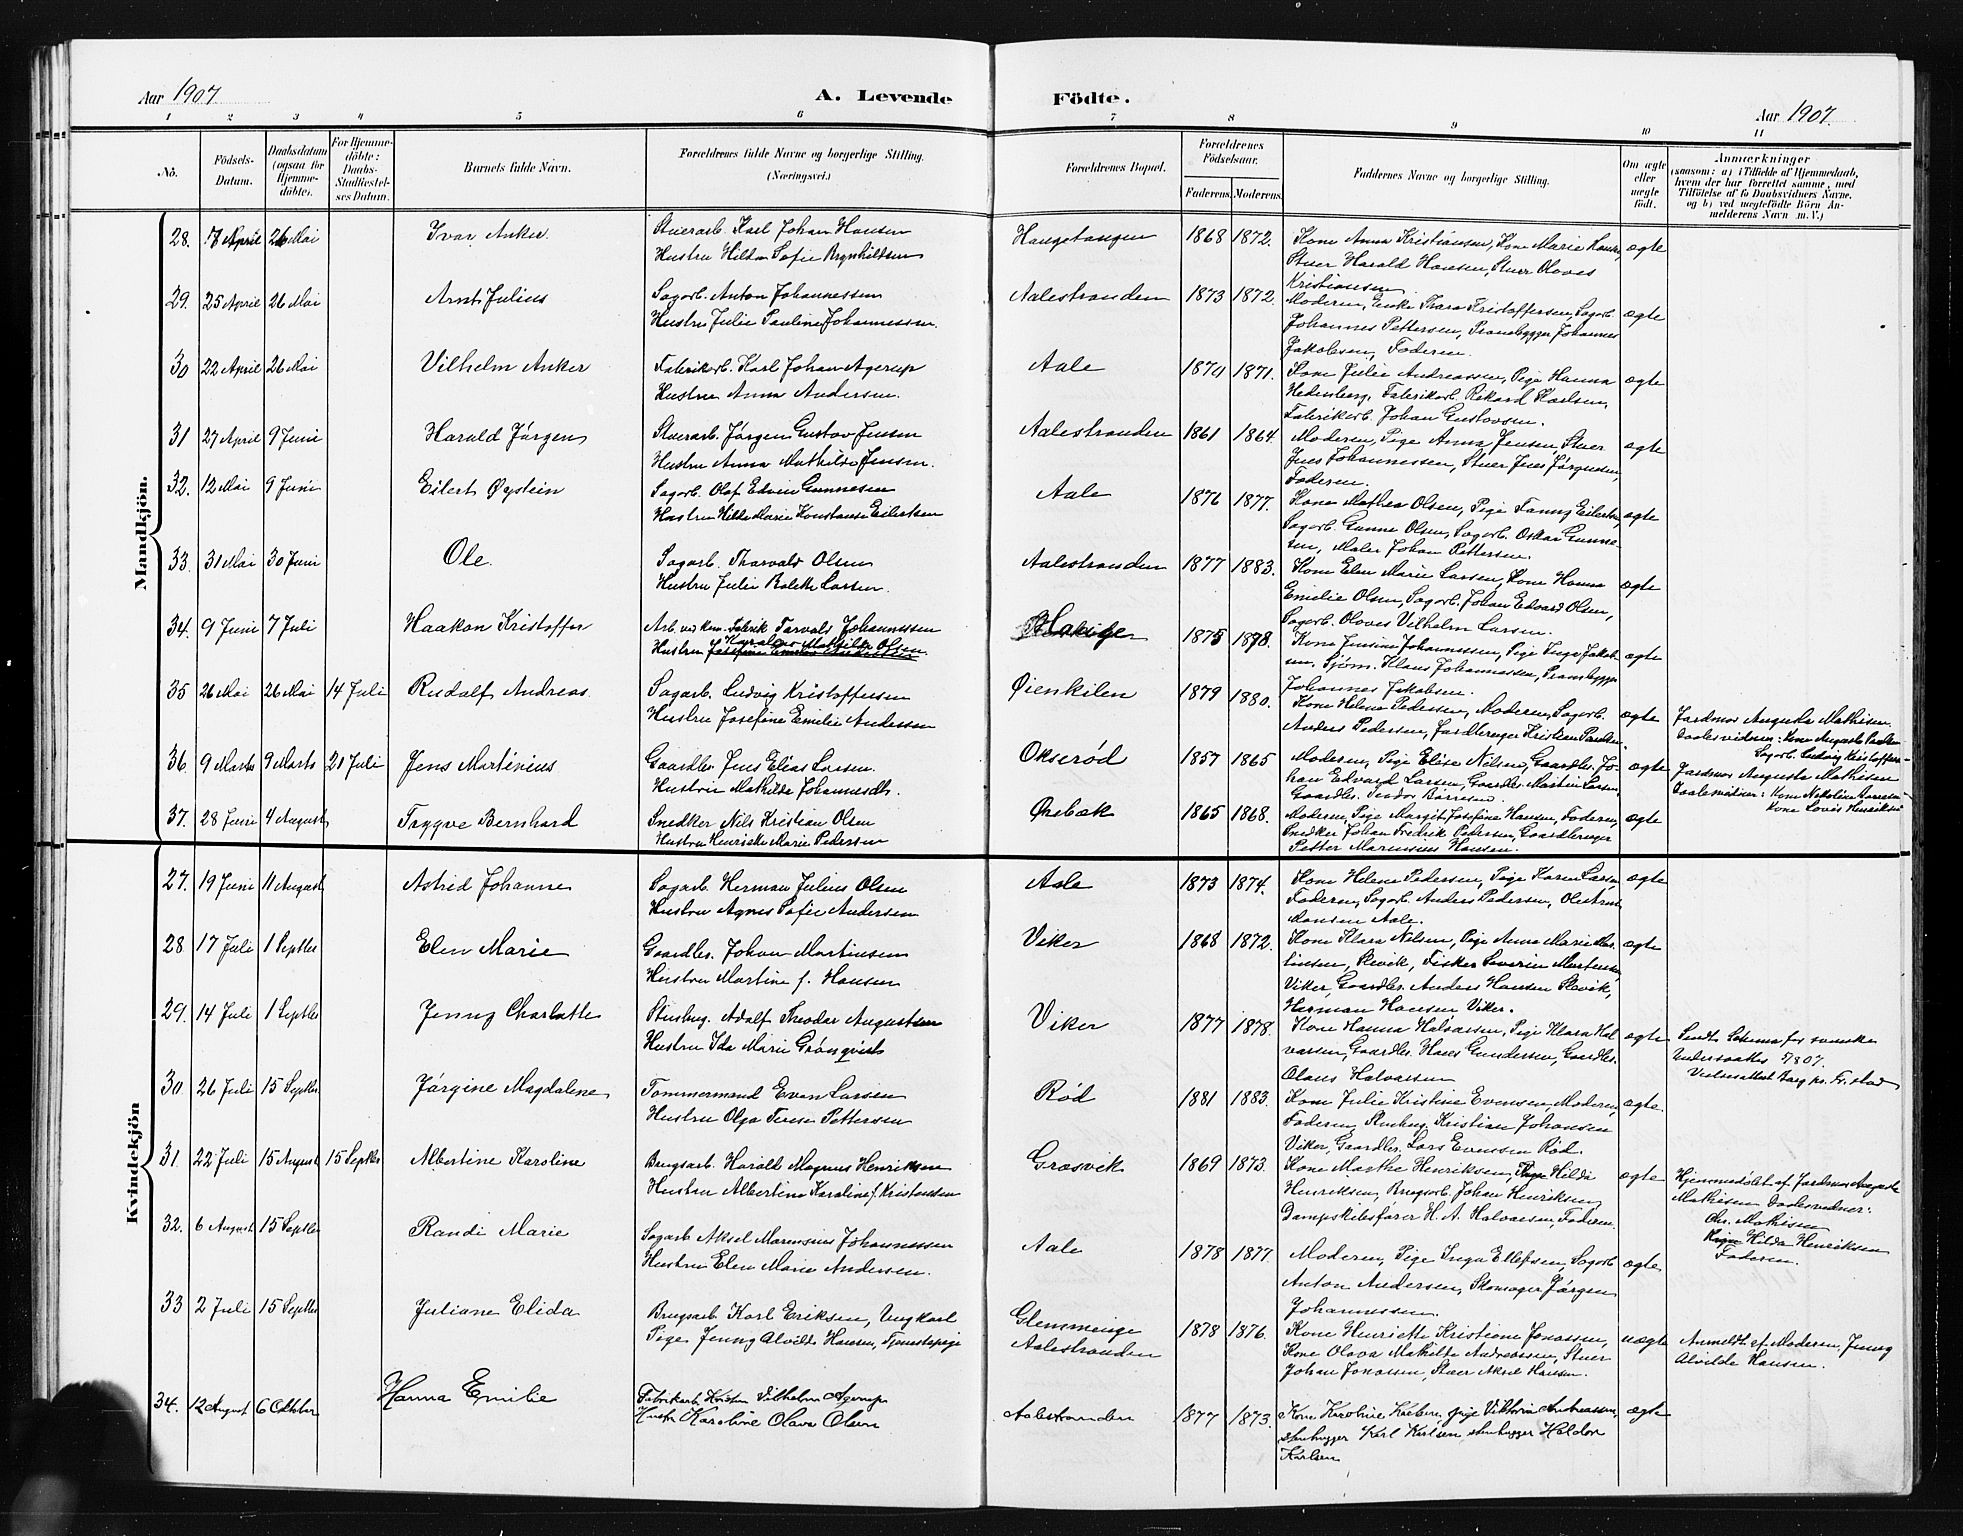 Aar 1907
A. Levende
Födte.
Aar 1907.
1 2 3 4 5 6 7 8 9 10 11
No.
Födsels-Datum.
Daabsdatum (ogsaa for Hjemme-döbte).
For Hjemme-döbte: Daabs-Stadfæstel-ses Datum.
Barnets fulde Navn.
Forældrenes fulde Navne og borgerlige Stilling. (Næringsvei.)
Forældrenes Bopæl.
Forældrenes Födselsaar.
Faderens. Moderens.
Faddernes Navne og borgerlige Stilling.
Om ægte eller uægte födt.
Anmærkninger
(saasom: a) i Tilfælde af Hjemmedaab, hvem der har forrettet samme, med Tilföielse af to Daabsvidners Navne. og b) ved uægtefödte Börn An-melderens Navn m. V.)
Mandkjön.
28. 17 April 26 Mai Ivar Anker. Stuerarb. Karl Johan Hansen
Hustru Hilda Sofie Brynhildsen
Haugetangen 1868 1872. Kone Anna Kristiansen, Kone Marie Hansen, ægte
Stuer Harald Hansen, Stuer Oloves
Kristiansen
29. 25 April 26 Mai Arnt Julius Sagarb. Anton Johannessen
Hustru Julie Pauline Johannessen.
Aalestranden 1873 1872. Moderen, Enke Thara Kristoffersen, Sagarb. ægte
Johannes Pettersen, Prambygger Johannes
Jakobsen, Faderen.
30 22 April 26 Mai Vilhelm Anker Fabrikarb. Karl Johan Agerup
Hustru Anna Andersen.
Aale 1870 1871. Kone Julie Andreassen, Pige Hanna ægte
Hedenberg, Fabrikarb. Rikard Karlsen,
Fabrikarb. Johan Gustavsen.
31 27 April 9 Juni Harald Jørgen Stuerarb. Jørgen Gustav Jensen
Hustru Anna Mathilde Jensen.
Aalestranden 1861 1864. Moderen, Pige Anna Jensen, Stuer ægte
Jens Johannessen, Stuer Jens Jørgensen,
Faderen.
32. 12 Mai 9 Juni Eilert Øystein Sagarb. Olaf Edvin Gunnesen
Hustru Hilda Marie Konstanse Eilertsen
Aale 1876 1877. Kone Mathea Olsen, Pige Fanny Eilertsen, ægte
Sagarb. Gunne Olsen, Sagarb. Oskar Gunne-
sen, Maler Johan Pettersen.
33. 31 Mai 30 Juni Ole. Sagarb. Thorvald Olsen
Hustru Julie Bolette Larsen
Aalestranden 1877 1883. Kone Elen Marie Larsen, Kone Hanna ægte
Emilie Olsen, Sagarb. Johan Edvard Olsen,
Sagarb. Oloves Vilhelm Larsen.
34. 9 Juni 7 Juli Haakon Kristoffer Arb. ved Kem. Fabrik Torvald Johannessen
Hustru Mathilde Olsen
1875 1878. Kone Jensine Johannessen, Pige Inga Jakob- ægte
sen, Sjøm. Klaus Johannessen, Prambygger
Johannes Jakobsen.
35 26 Mai 26 Mai 14 Juli Rudolf Andreas. Sagarb. Ludvig Kristoffersen
Hustru Josefine Emilie Andersen
Øienkilen 1879 1880. Kone Helene Pedersen, Moderen, Sagarb. ægte
Anders Pedersen, Jordbruger Kristian Paulsen.
Jordmor Augusta Mathisen.
Daabsvidner: Kone Augusta Paulsen
Sagarb. Ludvig Kristoffersen
36. 9 Marts 9 Marts 21 Juli Jens Martinius Gaardbr. Jens Elias Larsen.
Hustru Mathilde Johannesdtr.
Okserød 1857 1865 Moderen, Pige Elise Nilsen, Gaardbr. Jo- ægte
han Edvard Larsen, Gaardbr. Martin Larsen,
Gaardbr. Teodor Børresen.
Jordmor Augusta Mathisen
Daabsvidner: Kone Nikoline
Kone Lovise Henriksen
37. 28 Juni 4 August Trygve Bernhard Snedker Nils Kristian Olsen
Hustru Henriette Marie Pedersen
Ørebæk 1865 1868. Moderen, Pige Margit Josefine Hansen, Faderen, ægte
Snedker Johan Fredrik Pedersen, Gaardbruger
Petter Marensius Hansen.
Kvindekjön
27. 19 Juni 11 August Astrid Johanne Sagarb. Herman Julius Olsen
Hustru Agnes Sofie Andersen
Aale 1873 1874. Kone Helene Pedersen, Pige Karen Larsen, ægte
Faderen, Sagarb. Anders Pedersen,
Hansen Aale.
28 17 Juli 1 Septbr Elen Marie Gaardbr. Johan Martinsen
Hustru Martine f. Hansen
Viker 1868 1872. Kone Klara Nilsen, Pige Anna Marie Mar- ægte
tinsen, Slevik, Fisker Severin Martinsen,
Viker, Gaardbr. Anders Hansen Slevik,
Herman Hansen Viker.
29. 14 Juli 1 Septbr Jenny Charlotte Stenhug. Adolf Theodor Augustsen
Hustru Ida Marie Grönqvist
Viker 1877 1878. Kone Hanna Halvorsen, Pige Klara Hal- ægte
vorsen, Gaardbr. Hans Gundersen, Gaardbr.
Olaus Halvorsen
Sendt Schema for svenske
Undersaatter 5/9 07.
30. 26 Juli 15 Septbr. Jørgine Magdalene Tømmermand Even Larsen
Hustru Olga Pettersen
Rød 1881 1883. Kone Julie Kristine Evensen, Moderen, ægte.
Faderen, Stenhug. Kristian Johansen
Viker, Gaardbr. Lars Evensen Rød.
31. 22 Juli 15 August 15 Septbr Albertine Karoline Brugsarb. Harald Magnus Henriksen
Hustru Albertine Karoline f. Kristensen
Græsvik 1869 1873. Kone Marthe Henriksen, Pige Hilda ægte
Henriksen, Brugsarb. Johan Henriksen,
Dampskibsfører H. A. Halvorsen, Faderen.
Hjemmedøbt af Jordmor Augusta
Mathisen. Daabsvidner:
Chr. Mathisen
Hilda Henriksen
Faderen.
32. 6 August 15 Septbr Randi Marie Sagarb Aksel Marensius Johannessen
Hustru Elen Marie Andersen.
Aale 1878 1877. Moderen, Pige Inga Ellefsen, Sagarb ægte
Anton Andersen, Skomager Jørgen
Johannessen.
33 2 Juli 15 Septbr Juliane Elida Brugsarb Karl Eriksen, Ungkarl
Pige Jenny Alvilde Hansen, Tjenestepige
Glemminge
Aalestranden
1878 1876. Kone Henriette Kristiane Jonassen, uægte
Kone Olava Mathilde Andreassen, Stuer
Johan Jonassen, Stuer Aksel Hansen.
Anmeldt af Moderen Jenny
Alvilde Hansen.
34. 12 August 6 Oktober Hanna Emilie Fabrikarb Kristian Vilhelm Agerup
Hustr Karoline Olava Olsen
Aalestranden 1877 1873. Kone Karoline Karlsen, pige Viktoria Andreassen, ægte
stenhugger Karl Karlsen stenhugger Haldor
Karlsen